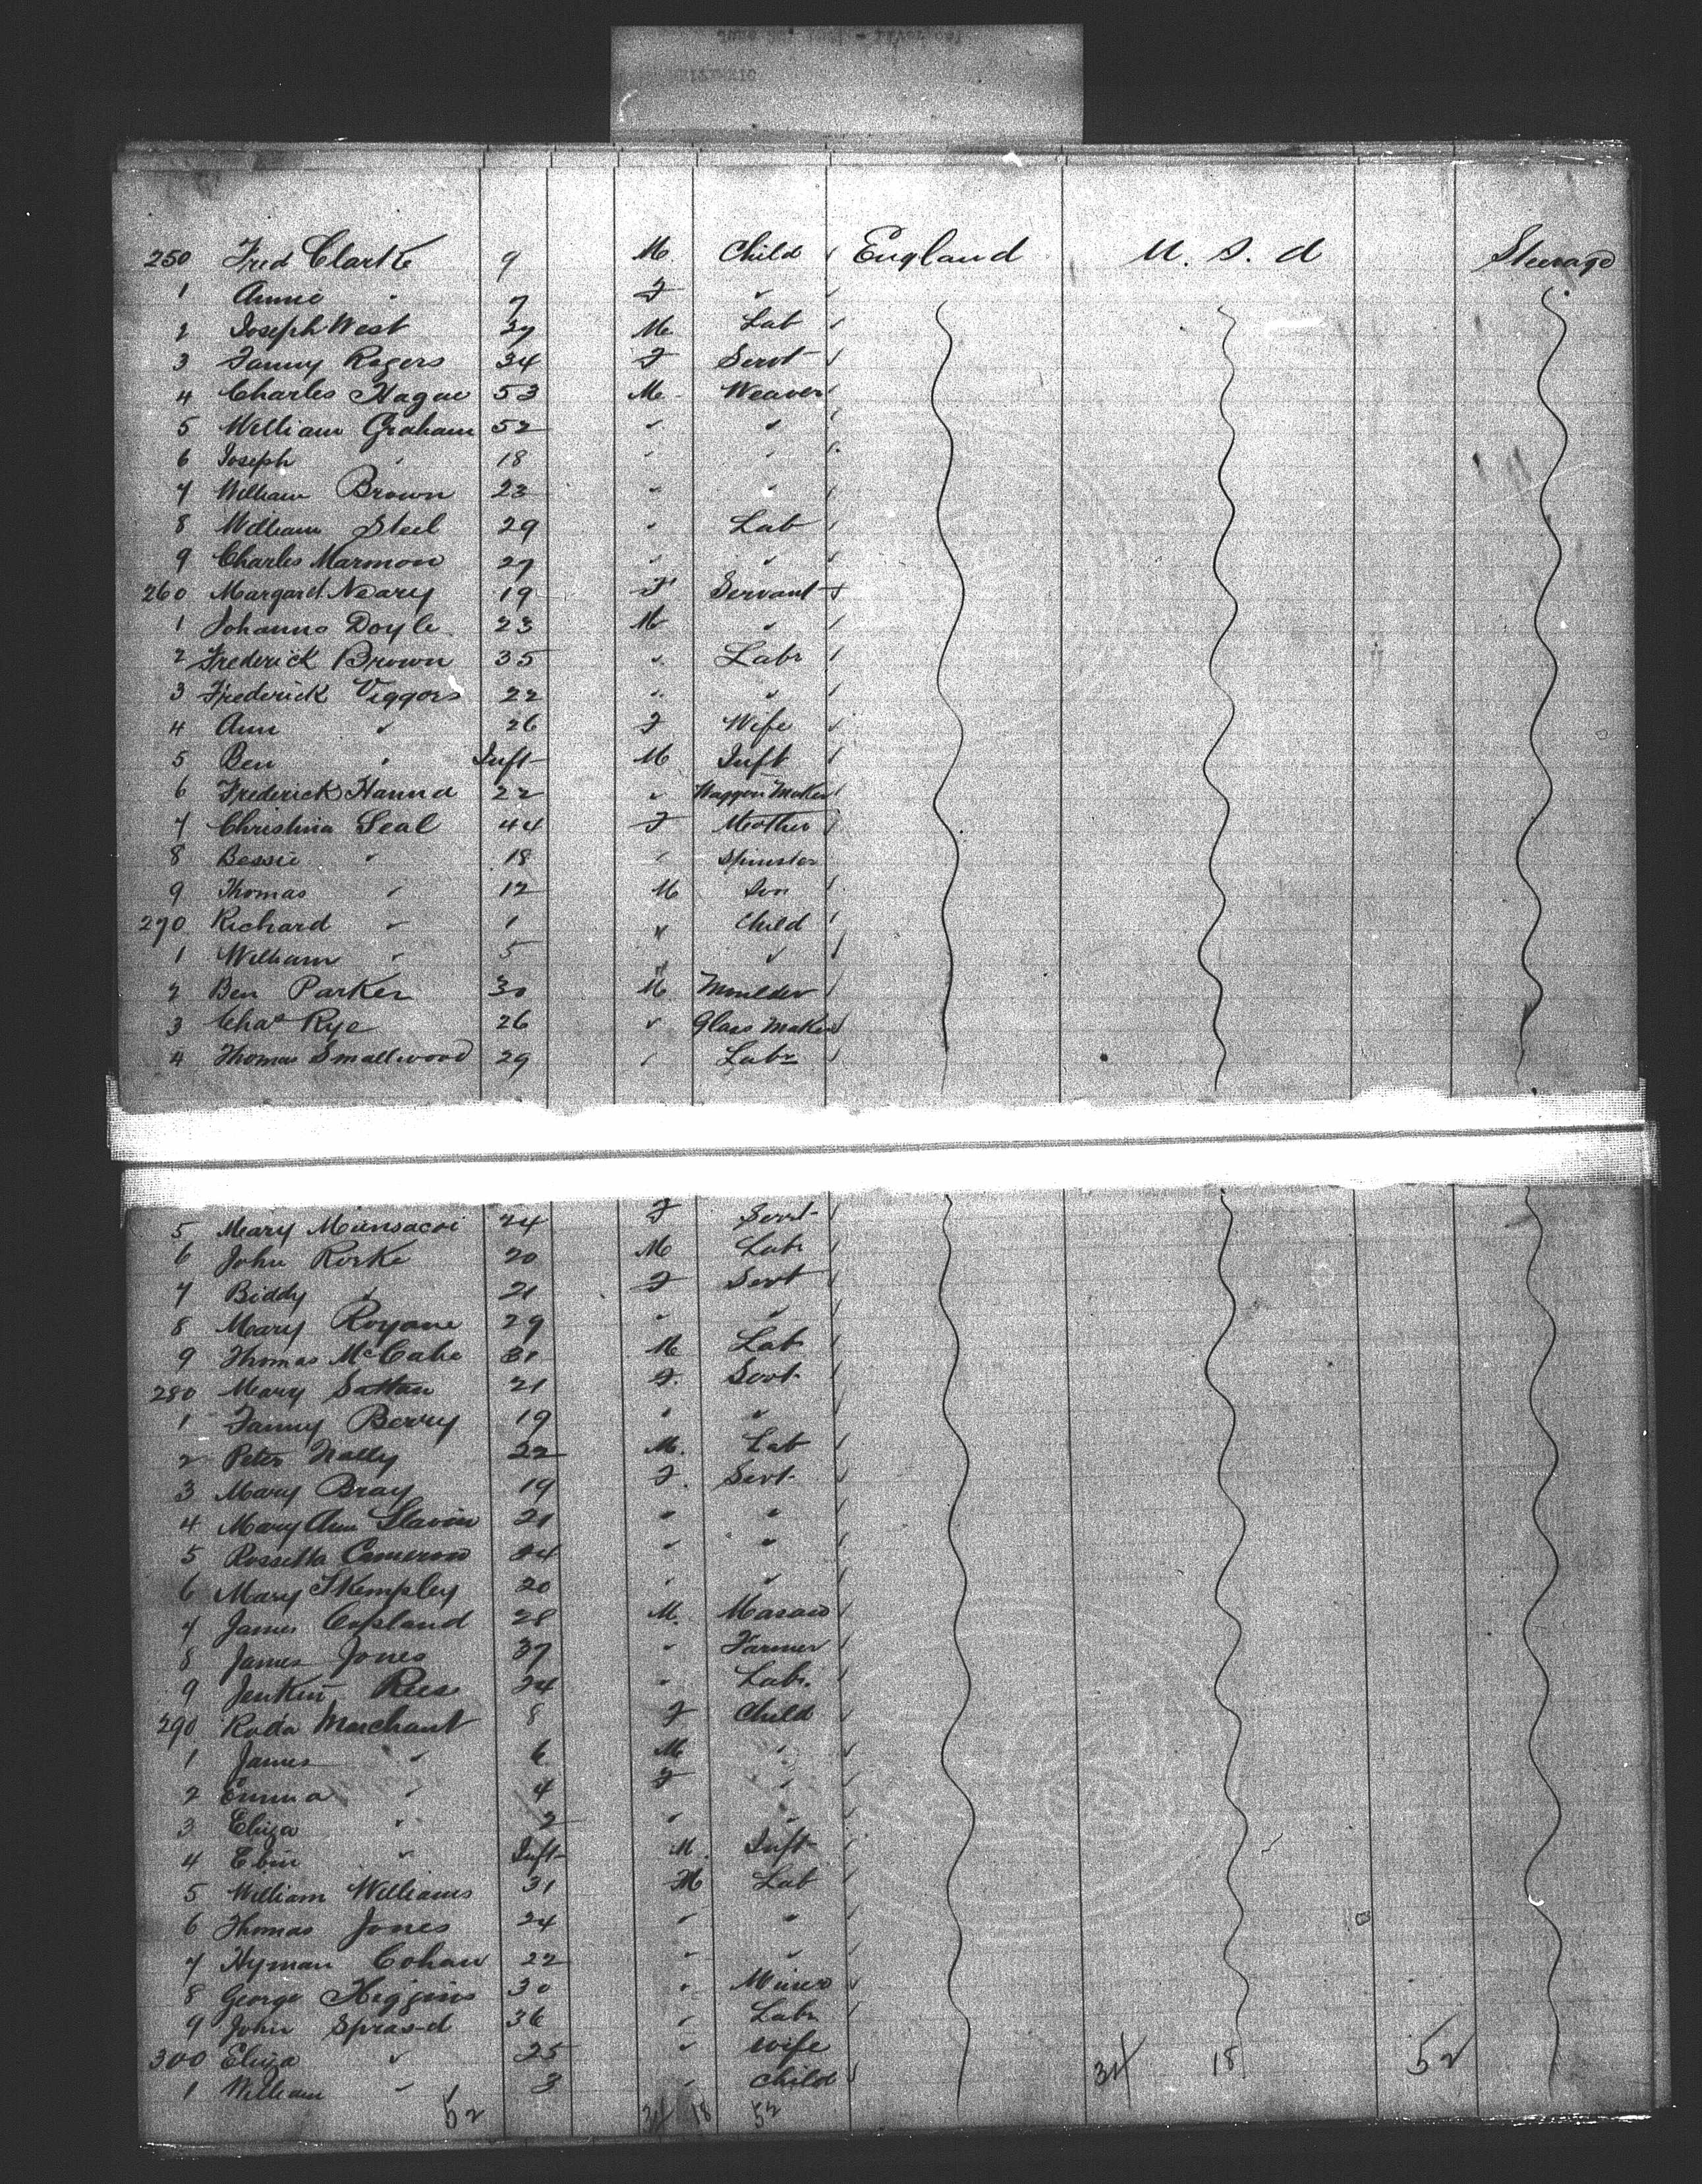 250 Fred Clarke 9 M. Child England U. S. A Steerage
1 Annie " 7 F "
2 Joseph West 37 M Lab
3 Fanny Rogers 34 F Servt
4 Charles Hague 53 M. Weaver
5 William Graham 52 " "
6 Joseph " 18 " "
7 William Brown 23 " "
8 William Steel 29 " Lab
9 Charles Marmon 27 " "
260 Margaret Neary 19 F Servant
1 Johanna Doyle 23 M "
2 Frederick Brown 35 " Labr
3 Frederick Viggors 22 " "
4 Ann " 26 F Wife
5 Ben " Inft M Inft
6 Frederick Hanna 22 " Waggon Maker
7 Christina Seal 44 F Mother
8 Bessie " 18 " Spinster
9 Thomas " 12 M Son
270 Richard " 1 " Child
1 William " 5 " "
2 Ben Parker 30 M Moulder
3 Chas Rye 26 " Glass Maker
4 Thomas Smallwood 29 " Labr
5 Mary 24 F Servt
6 John Rorke 20 M Labr
7 Biddy " 21 F Servt
8 Mary Royane 29 " "
9 Thomas McCabe 31 M Lab
280 Mary Sattan 21 F. Servt
1 Fanny Berry 19 " "
2 Peter Nally 22 M. Lab
3 Mary Bray 19 F. Servt
4 Mary Ann Slavin 21 " "
5 Rossetta Cameron 24 " "
6 Mary Skempley 20 " "
7 James Copland 28 M. Mason
8 James Jones 37 " Farmer
9 Jenkin Rees 24 " Labr.
290 Roda Marchant 8 F Child
1 James " 6 M "
2 Emma " 4 F "
3 Eliza " 2 " "
4 Ebin " Inft M. Inft
5 William Williams 31 M Lab
6 Thomas Jones 24 " "
7 Hyman Cohan 22 " "
8 George Higgins 30 " Miner
9 John 36 " Labr
300 Eliza " 25 " Wife 34 18 52
1 William " 3 " Child
52 34 18 52